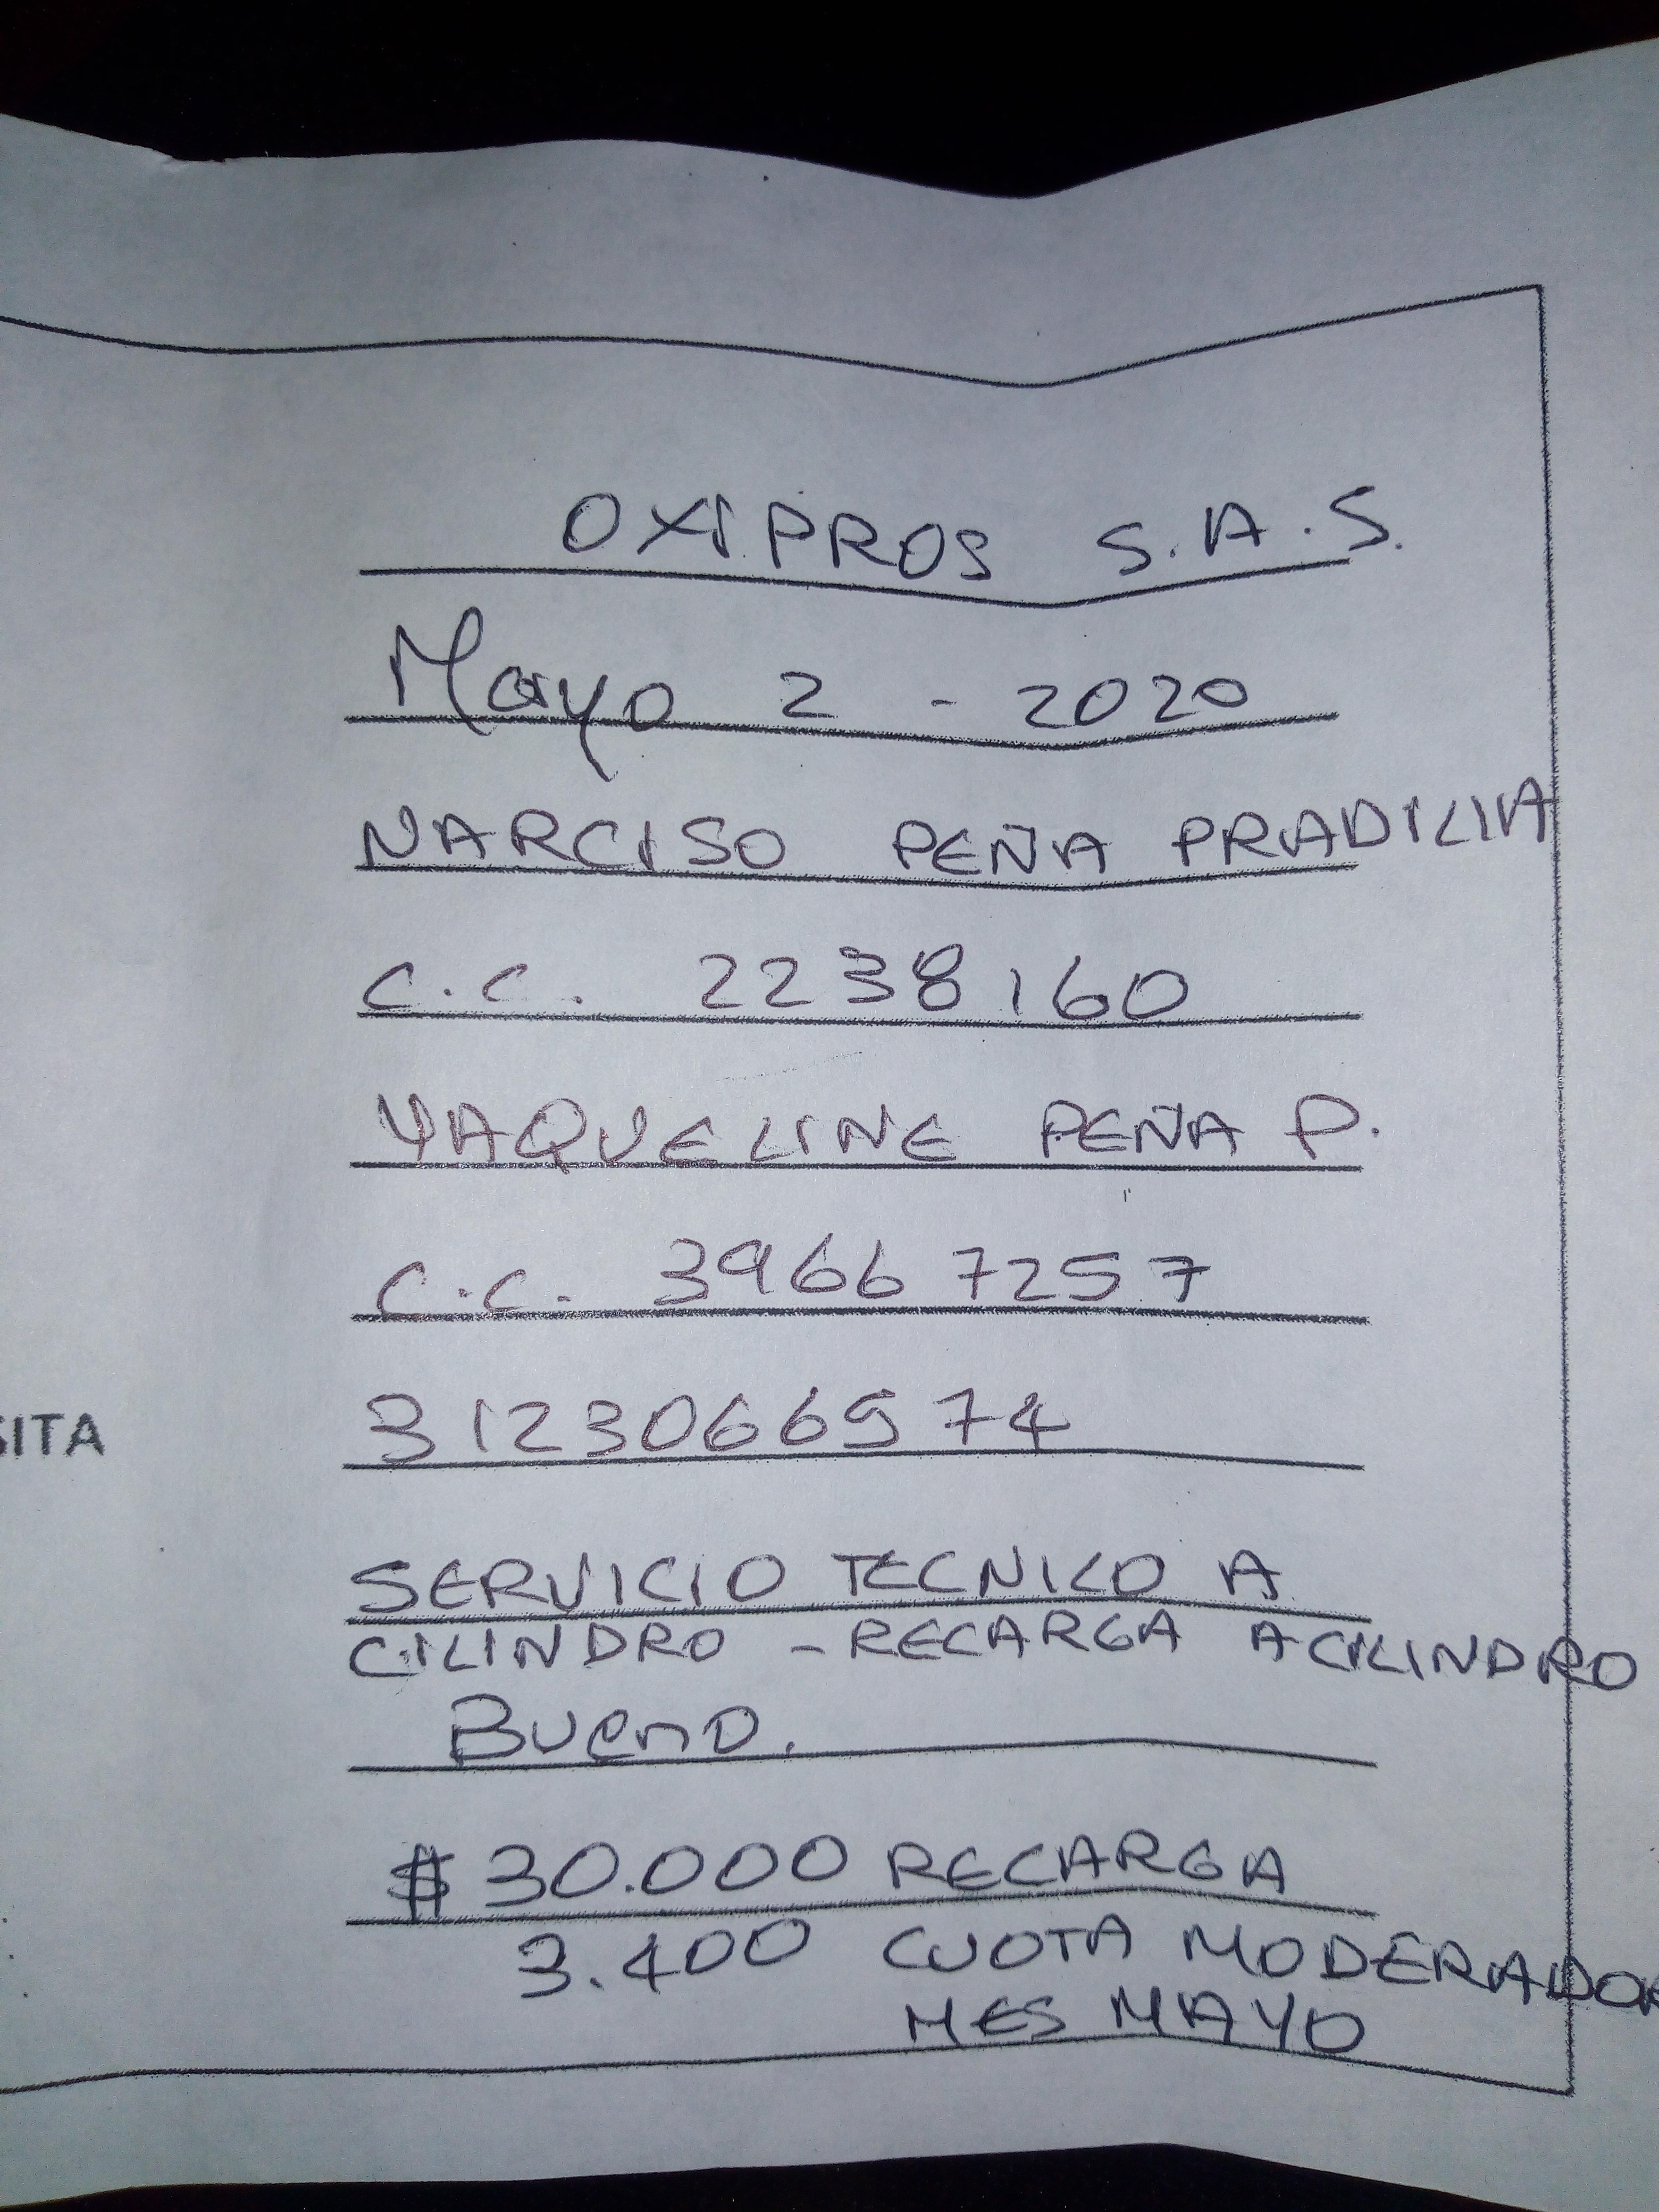 OXIPROS S.A.S.
Mayo 2 - 2020
NARCISO PEÑA PRADILLA
C.C. 2238160
YAQUELINE PEÑA P.
C.C. 39667257
SITA 3123066574
SERVICIO TECNICO A
CILINDRO - RECARGA A CILINDRO
Bueno.
$ 30.000 RECARGA
3.400 CUOTA MODERADOR
MES MAYO